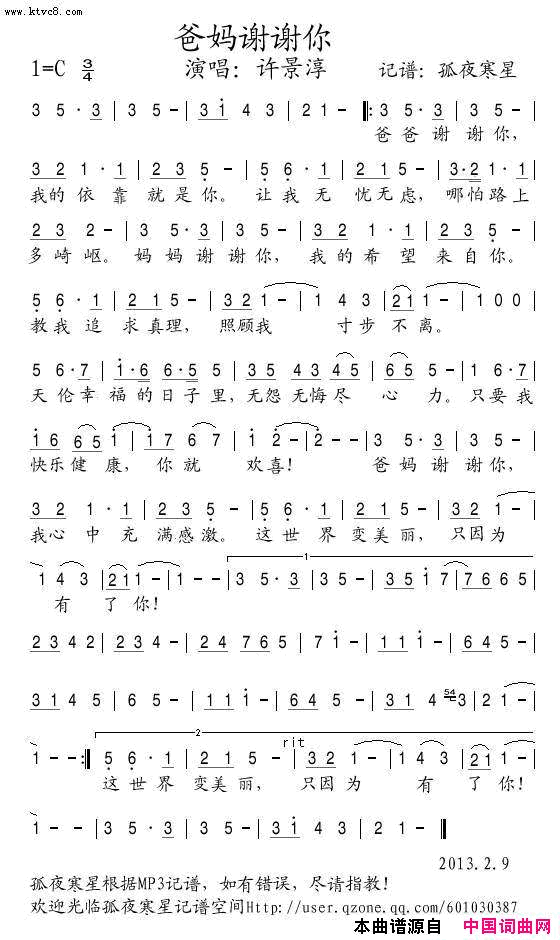 www.ktvc8.com
爸妈谢谢你
1=C 3/4 演唱：许景淳 记谱：孤夜寒星
3 5·3 | 3 5 - | 3 1 4 3 | 2 1 - ‖: 3 5·3 | 3 5 - |
爸爸 谢 谢你，
3 2 1·1 | 2 3 5 - | 5 6·1 | 2 1 5 - | 3·2 1·1 |
我的 依 靠 就 是 你。 让 我 无 忧无虑， 哪怕 路上
2 3 2 - | 3 5·3 | 3 5 - | 3 2 1·1 | 2 3 5 - |
多崎岖。 妈妈 谢 谢你， 我 的 希 望 来自 你。
5 6·1 | 2 1 5 - | 3 2 1 - | 1 4 3 | 2 1 1 - | 1 0 0 |
教我 追 求真理， 照顾我 寸步 不 离。
5 6·7 | 1·6 6·5 5 | 3 5 4 3 4 5 | 6 5 5 - | 1 6·7 |
天伦幸 福的日子里，无怨无悔尽 心 力。只要我
1 6 6 5 1 | 1 7 6 7 | 1 2 - | 2 - - | 3 5·3 | 3 5 - |
快乐健 康， 你就 欢喜！ 爸 妈 谢 谢你，
3 2 1·1 | 2 3 5 - | 5 6·1 | 2 1 5 - | 3 2 1 - |
我心 中 充 满感激。 这世 界 变美丽， 只因为
1 4 3 | 2 1 1 - | 1 - - | 3 5·3 | 3 5 - | 3 5 1 7 | 7 6 6 5 |
有 了 你！
2 3 4 2 | 2 3 4 - | 2 4 7 6 5 | 7 1 - | 1 1 1 - | 6 4 5 - |
3 1 4 5 | 6 5 - | 1 1 1 - | 6 4 5 - | 3 1 4 54 3 | 2 1 - |
rit
1 - - :‖ 5 6·1 | 2 1 5 - | 3 2 1 - | 1 4 3 | 2 1 1 - |
这世 界 变美 丽， 只因 为 有 了你！
1 - - | 3 5·3 | 3 5 - | 3 1 4 3 | 2 1 - ‖
2013.2.9
孤夜寒星根据MP3记谱，如有错误，尽请指教！
欢迎光临孤夜寒星记谱空间Http://user.qzone.qq.com/601030387
本曲谱源自 中国词曲网